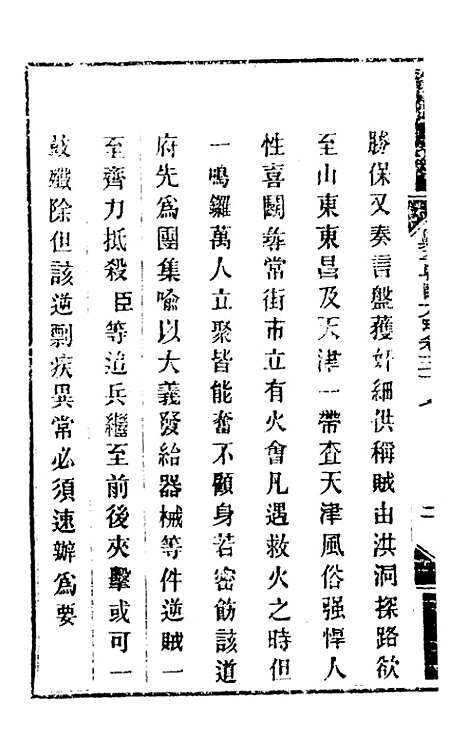 勝保又奏言盤獲奸細供稱賊由洪洞探路欲
至山東東昌及天津一帶查天津風俗强悍人
性喜鬭每常街市立有火會凡遇救火之時但
一鳴鑼萬人立聚皆能奮不顧身若密飭該道
府先為團集喻以大義發給器械等件逆賊一
至齊力抵殺臣等追兵繼至前後夾擊或可一
鼓殲除但該逆剽疾異常必須速辦為要
二